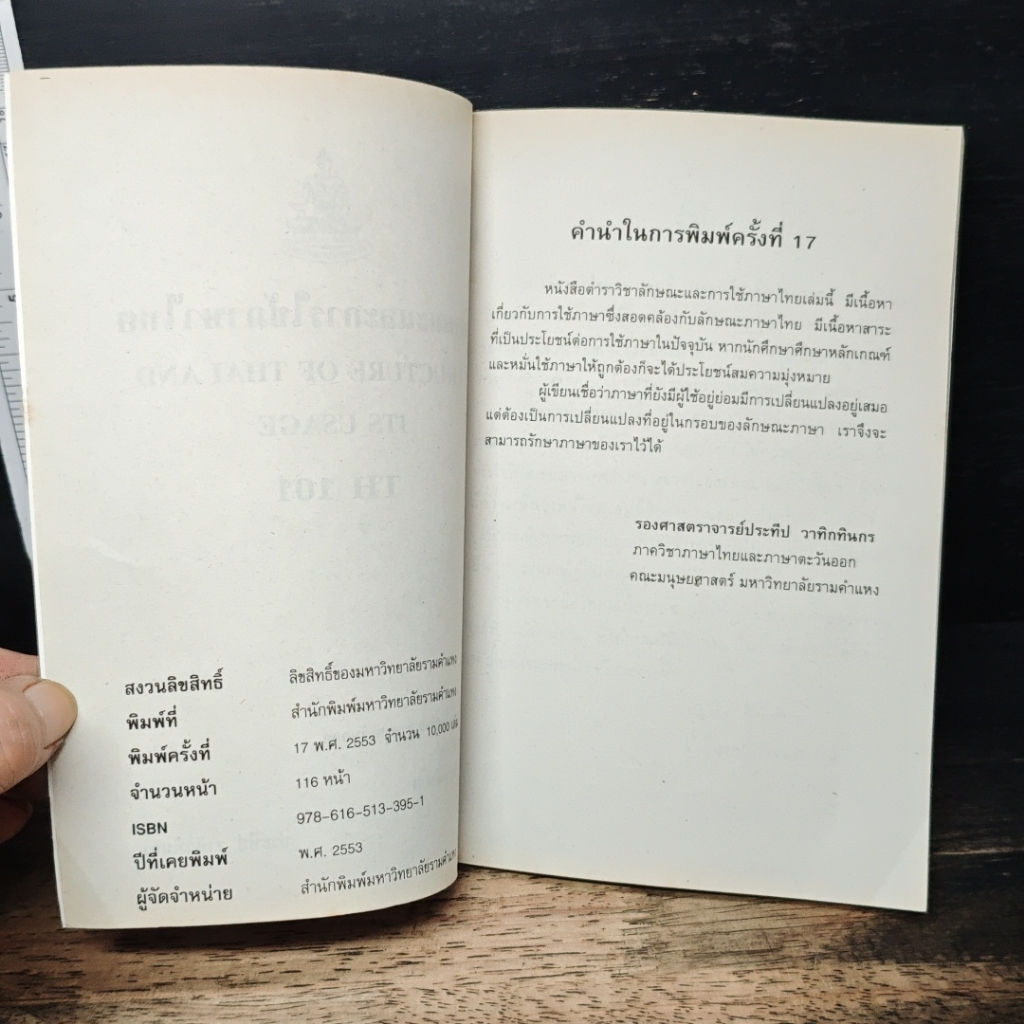 สงวนลิขสิทธิ์ ลิขสิทธิ์ของมหาวิทยาลัยรามคำแหง
พิมพ์ที่ สำนักพิมพ์มหาวิทยาลัยรามคำแหง
พิมพ์ครั้งที่ 17 พ.ศ. 2553 จำนวน 10,000 เล่ม
จำนวนหน้า 116 หน้า
ISBN 978-616-513-395-1
ปีที่เคยพิมพ์ พ.ศ. 2553
ผู้จัดจำหน่าย สำนักพิมพ์มหาวิทยาลัยรามคำแหง
คำนำในการพิมพ์ครั้งที่ 17
หนังสือตำราวิชาลักษณะและการใช้ภาษาไทยเล่มนี้ มีเนื้อหา
เกี่ยวกับการใช้ภาษาซึ่งสอดคล้องกับลักษณะภาษาไทย มีเนื้อหาสาระ
ที่เป็นประโยชน์ต่อการใช้ภาษาในปัจจุบัน หากนักศึกษาศึกษาหลักเกณฑ์
และหมั่นใช้ภาษาให้ถูกต้องก็จะได้ประโยชน์สมความมุ่งหมาย
ผู้เขียนเชื่อว่าภาษาที่ยังมีผู้ใช้อยู่ย่อมมีการเปลี่ยนแปลงอยู่เสมอ
แต่ต้องเป็นการเปลี่ยนแปลงที่อยู่ในกรอบของลักษณะภาษา เราจึงจะ
สามารถรักษาภาษาของเราไว้ได้
รองศาสตราจารย์ประทีป วาทิกทินกร
ภาควิชาภาษาไทยและภาษาตะวันออก
คณะมนุษยศาสตร์ มหาวิทยาลัยรามคำแหง